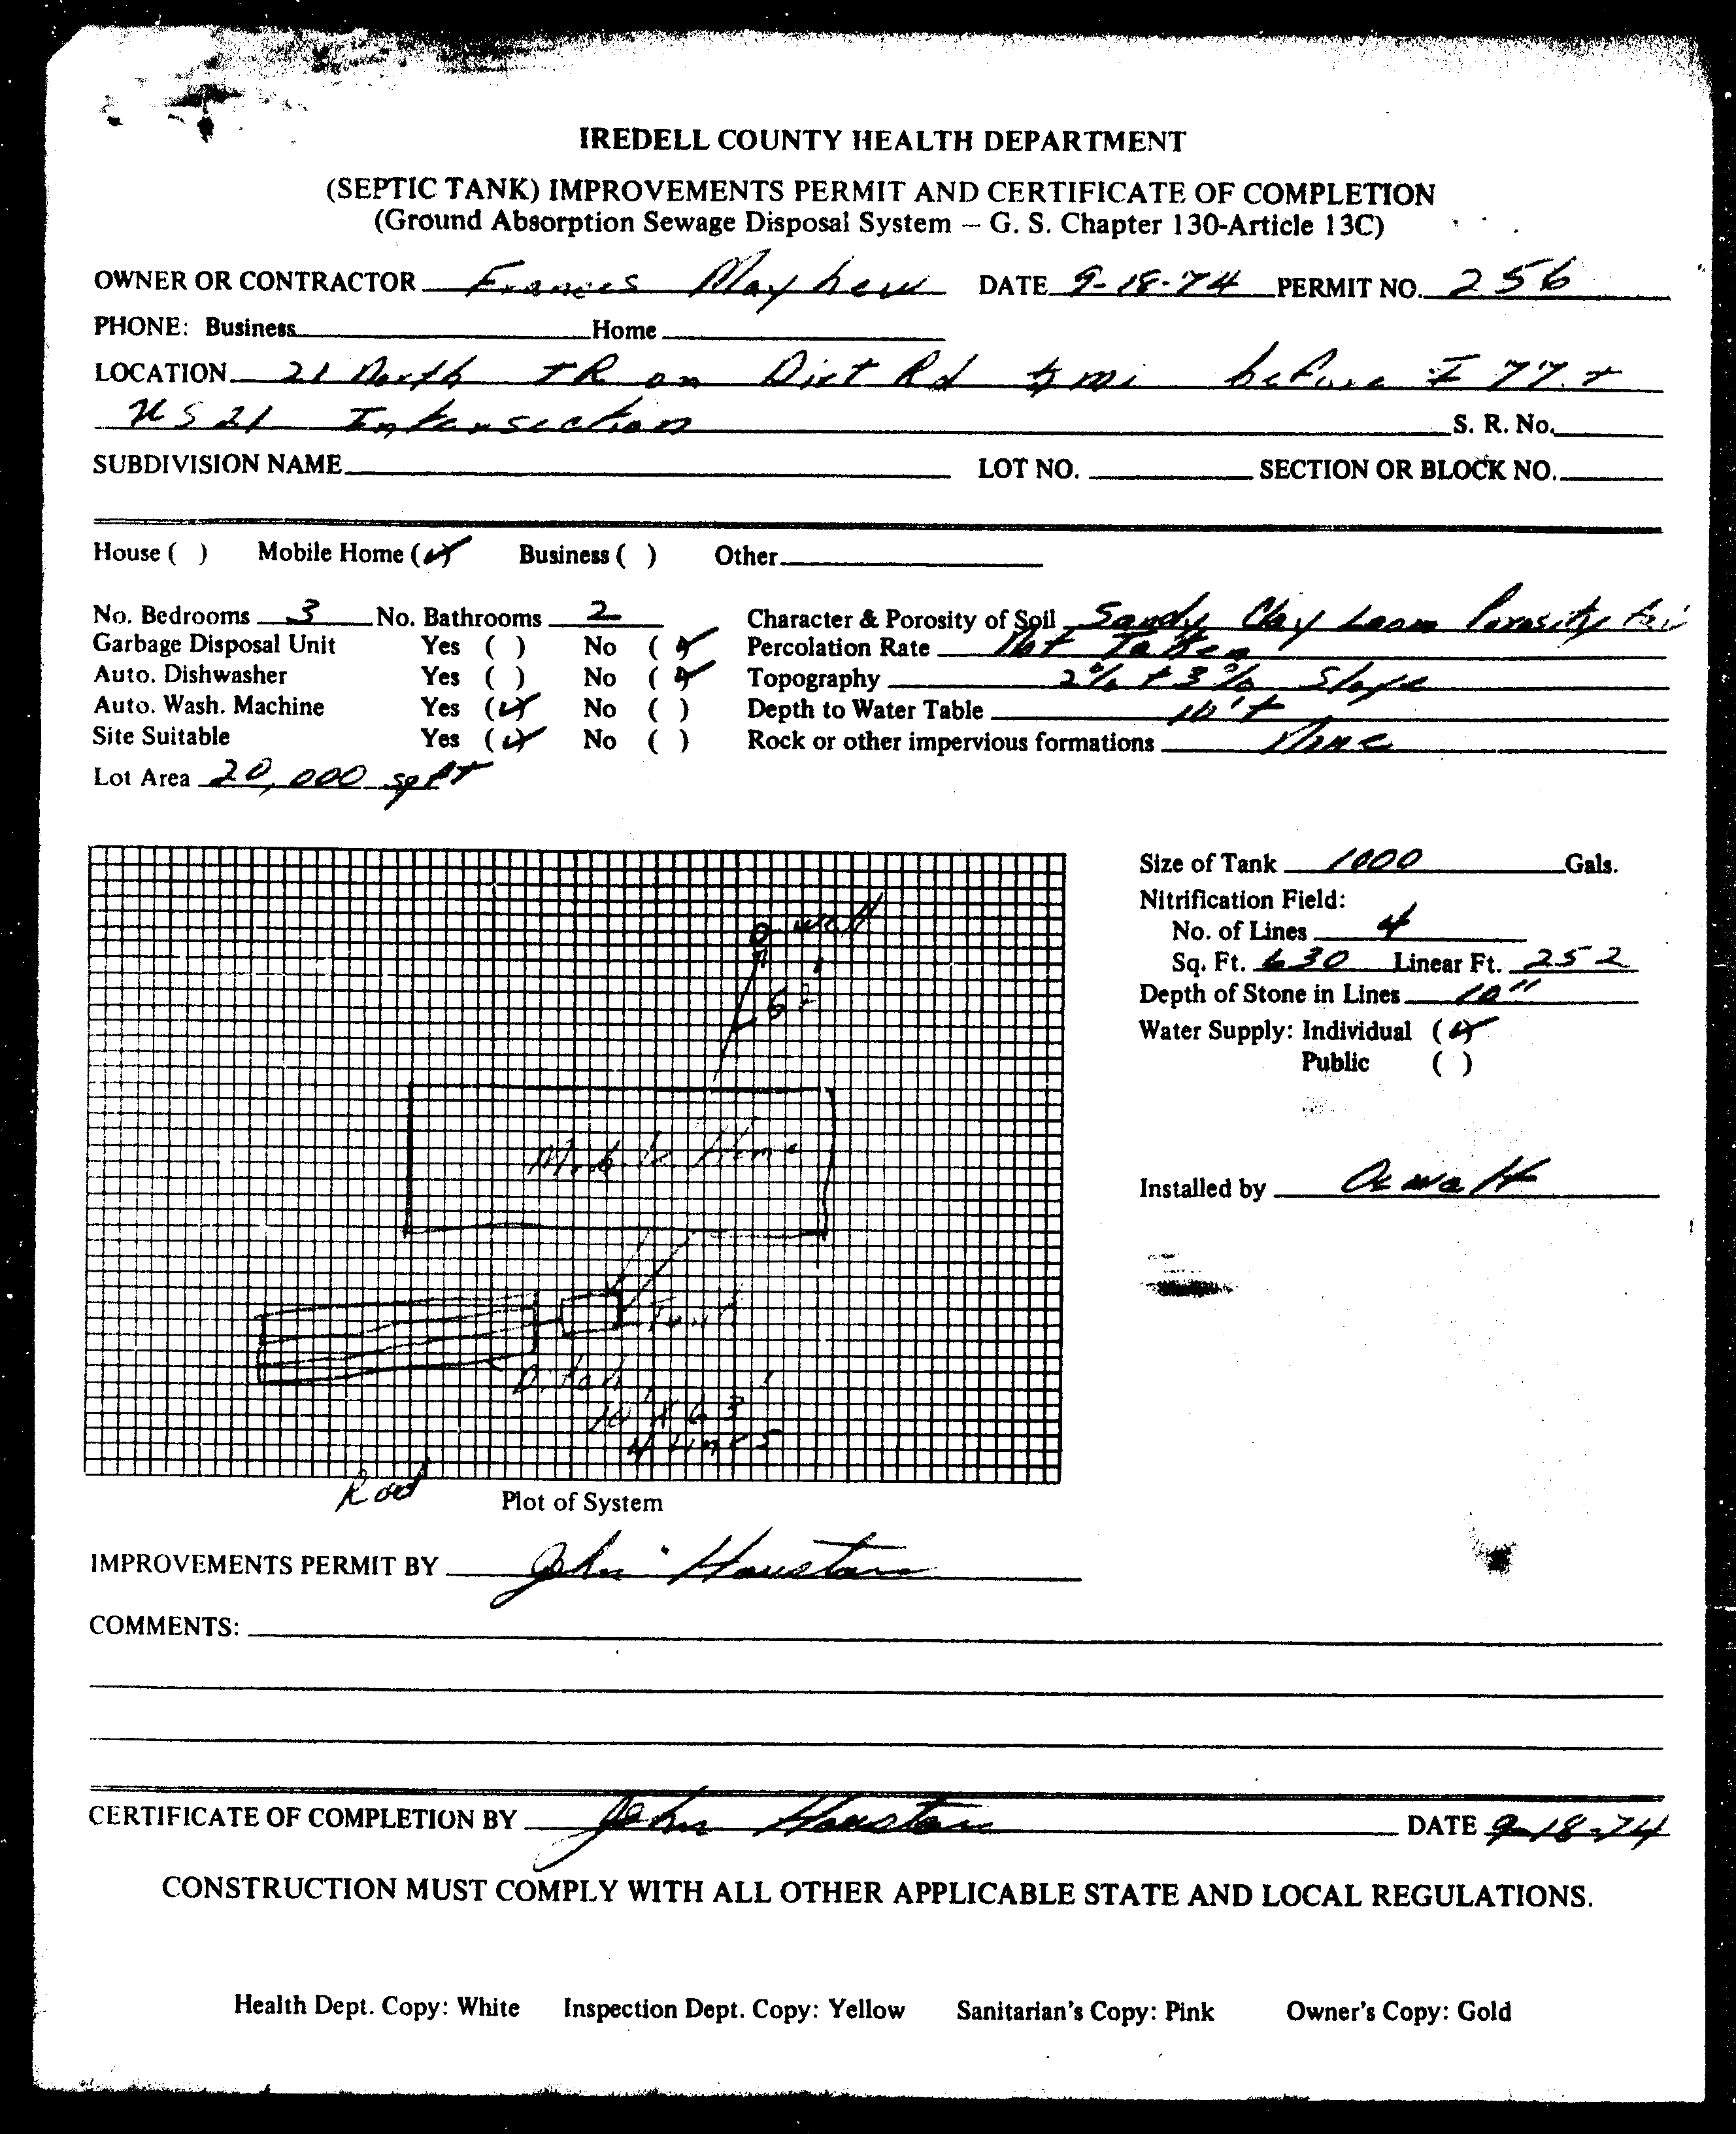 IREDELL COUNTY HEALTH DEPARTMENT
(SEPTIC TANK) IMPROVEMENTS PERMIT AND CERTIFICATE OF COMPLETION
(Ground Absorption Sewage Disposal System — G. S. Chapter 130-Article 13C)
OWNER OR CONTRACTOR Frances Mayhew DATE 9-18-74 PERMIT NO. 256
PHONE: Business Home
LOCATION 21 North TR on Dirt Rd mi before I 77 +
US 21 Intersection S. R. No.
SUBDIVISION NAME LOT NO. SECTION OR BLOCK NO.
House ( ) Mobile Home (✓) Business ( ) Other
No. Bedrooms 3 No. Bathrooms 2 Character & Porosity of Soil Sandy Clay Loam Porosity
Garbage Disposal Unit Yes ( ) No (✓) Percolation Rate Not Taken
Auto. Dishwasher Yes ( ) No (✓) Topography 2% + 3% Slope
Auto. Wash. Machine Yes (✓) No ( ) Depth to Water Table 10'+
Site Suitable Yes (✓) No ( ) Rock or other impervious formations None
Lot Area 20,000 sq ft
Size of Tank 1000 Gals.
Nitrification Field:
No. of Lines 4
Sq. Ft. 630 Linear Ft. 252
Depth of Stone in Lines 10"
Water Supply: Individual (✓)
Public ( )
Installed by
well
Mobile Home
Tank
Ditch
4 Lines
Road
Plot of System
IMPROVEMENTS PERMIT BY John Houston
COMMENTS:
CERTIFICATE OF COMPLETION BY John Houston DATE 9-18-74
CONSTRUCTION MUST COMPLY WITH ALL OTHER APPLICABLE STATE AND LOCAL REGULATIONS.
Health Dept. Copy: White Inspection Dept. Copy: Yellow Sanitarian's Copy: Pink Owner's Copy: Gold